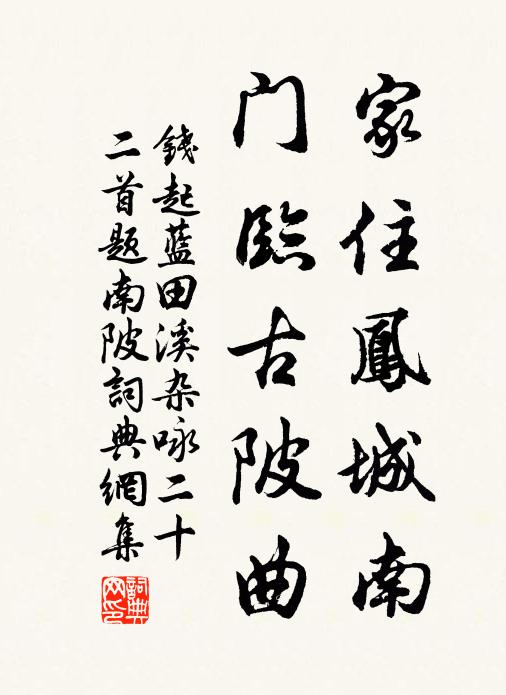 家住鳳城南
门臨古陂曲
錢起藍田溪杂咏二十
二首题南陂詞典網集
詞典网印